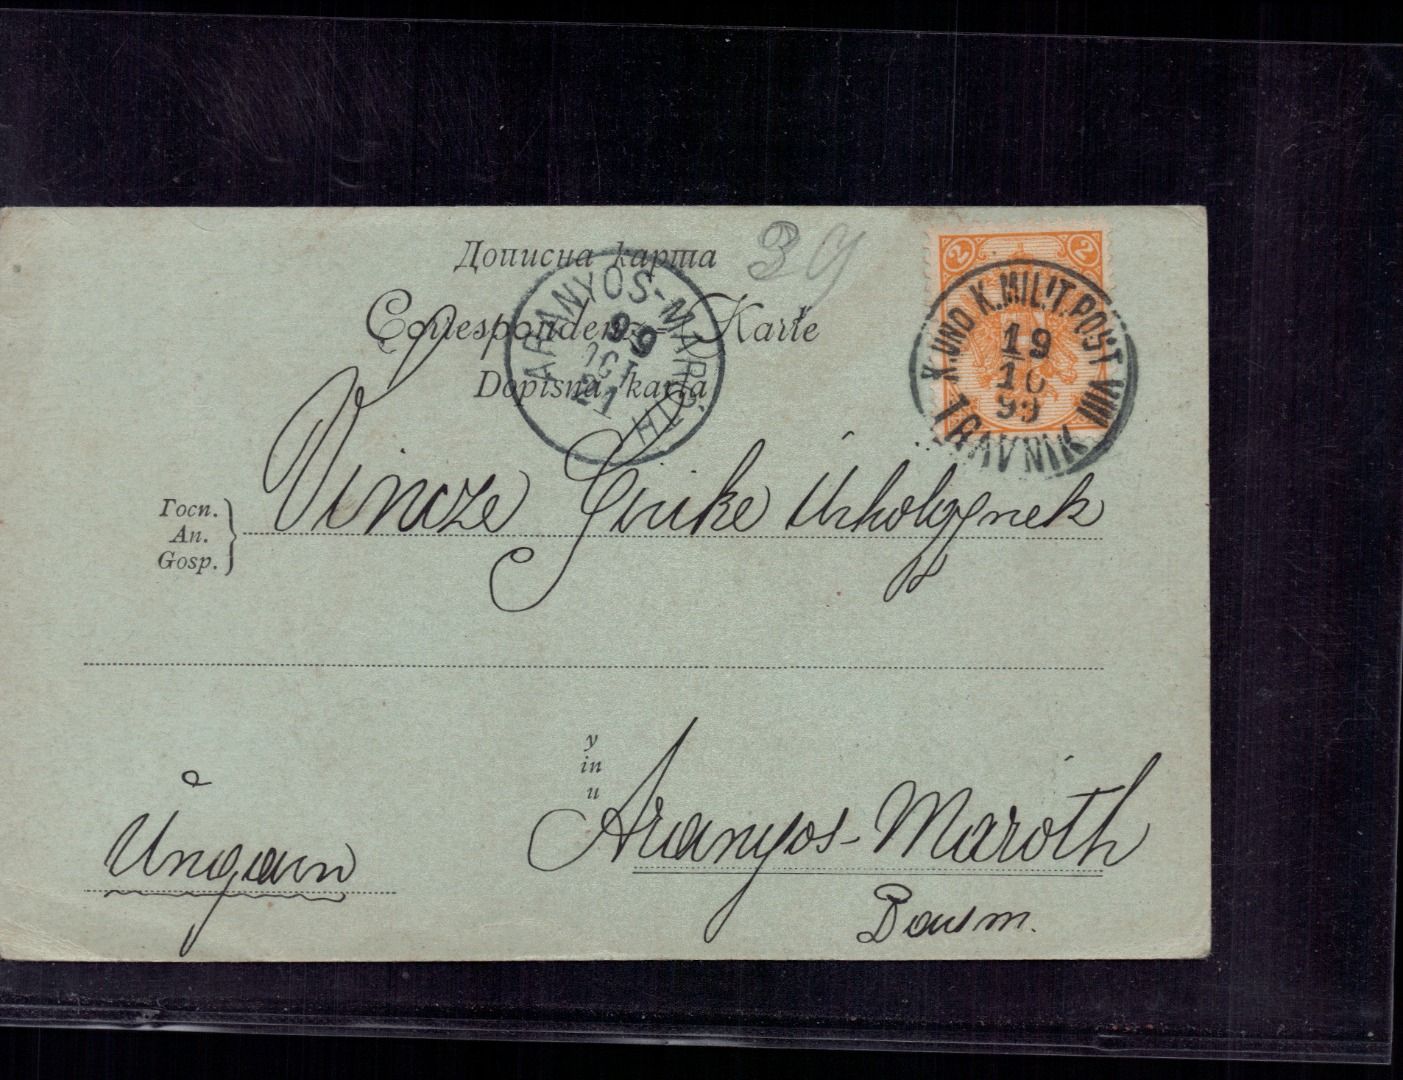 Дописна карта
39
Correspondenz-Karte
Dopisna karta
ARANYOS-MARÓTH
99
OCT
21
2 2
K. UND K. MILIT. POST VIII
19
10
99
TRAVNIK
Госп.
An.
Gosp.
Vincze Girike Úrhölgynek
у
in
u
Aranyos-Maróth
Ungarn
Barsm.